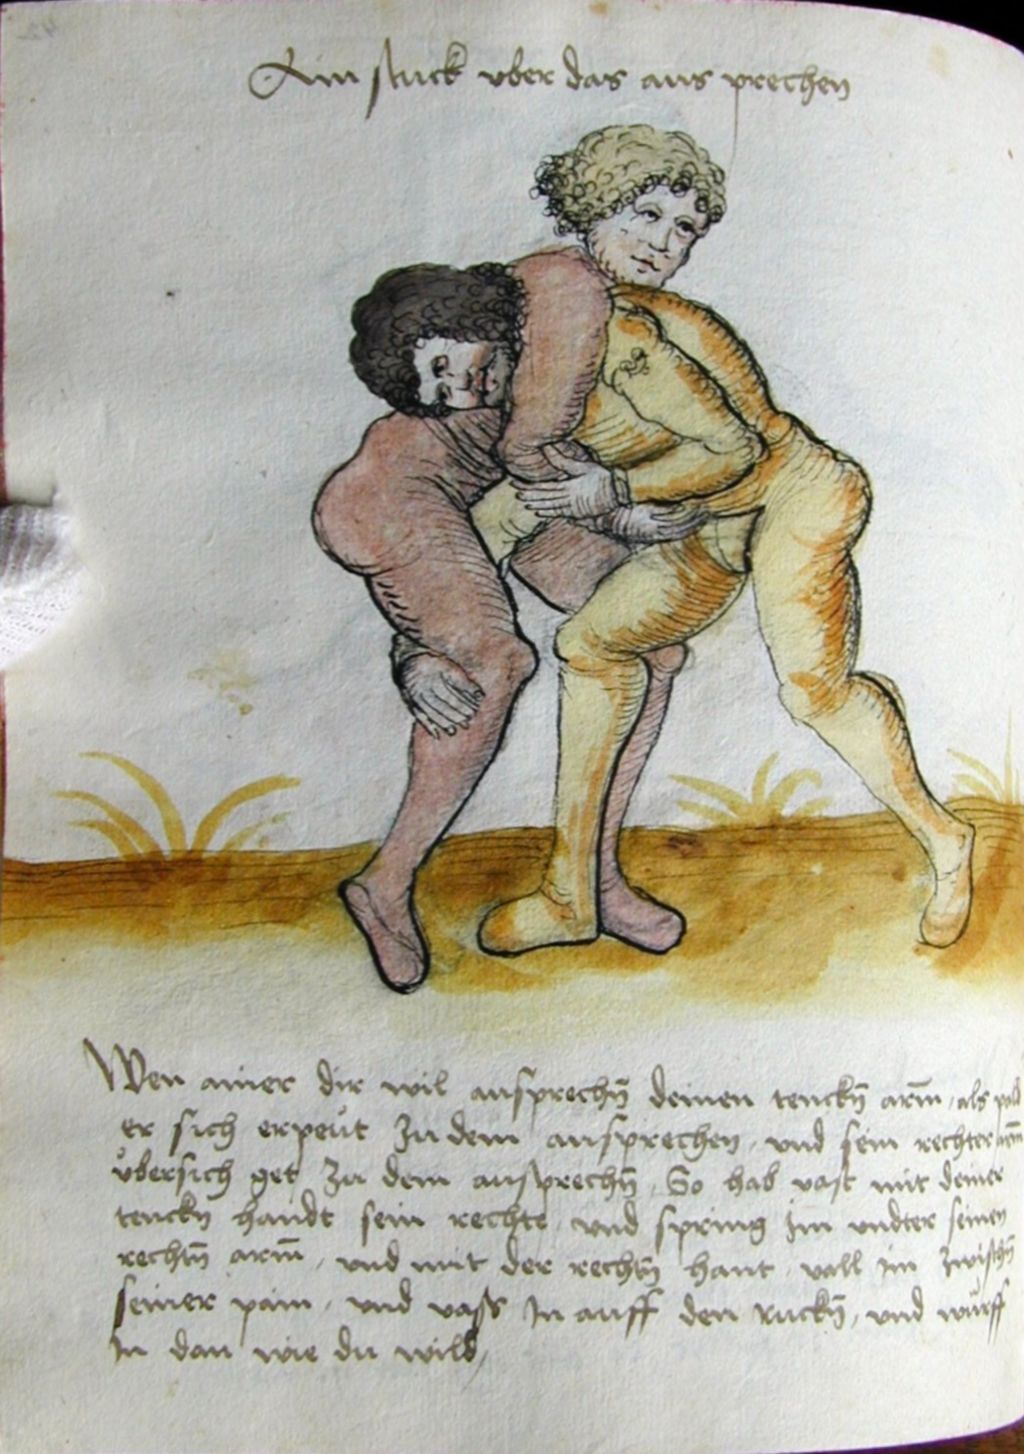 Ain stuck vber das aus prechen
Wen ainer dir wil ansprechn̄ deinen tenckn̄ arm̄, als pald
er sich erpeut zu dem ansprechen, vnd sein rechter arm̄
übersich get zu dem ansprechn̄, So hab vast mit deiner
tenckn̄ handt sein rechte, vnd spring im vndter seinen
rechtn̄ arm̄, vnd mit der rechtn̄ hant vall im zwischn̄
seiner pain, vnd vass In auff den ruckn̄, vnd würff
In dan wie du wild,